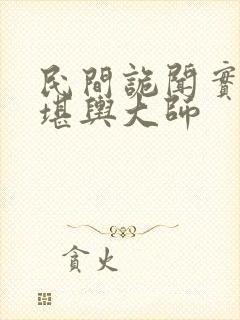 民間詭聞實
堪輿大師
貪火